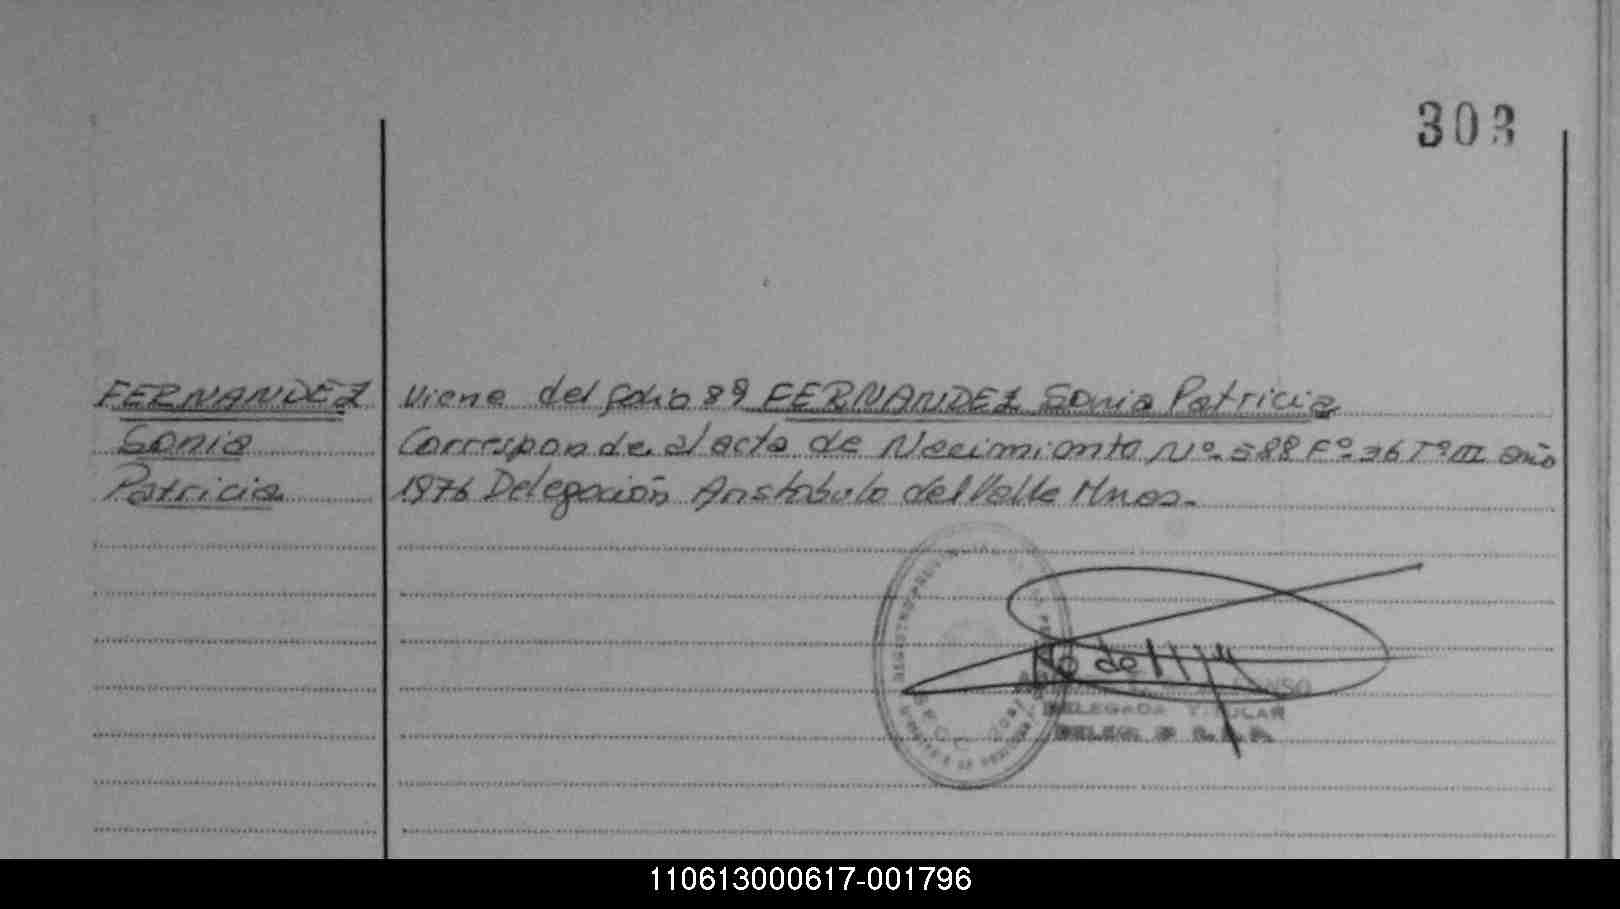 303
FERNANDEZ Viene del folio 89 FERNANDEZ Sonia Patricia
Sonia Corresponde al acta de Nacimiento Nº 588 Fº 36 Tº III año
Patricia 1976 Delegación Aristobulo del Valle Mnes.-
DELEGADA TITULAR
110613000617-001796